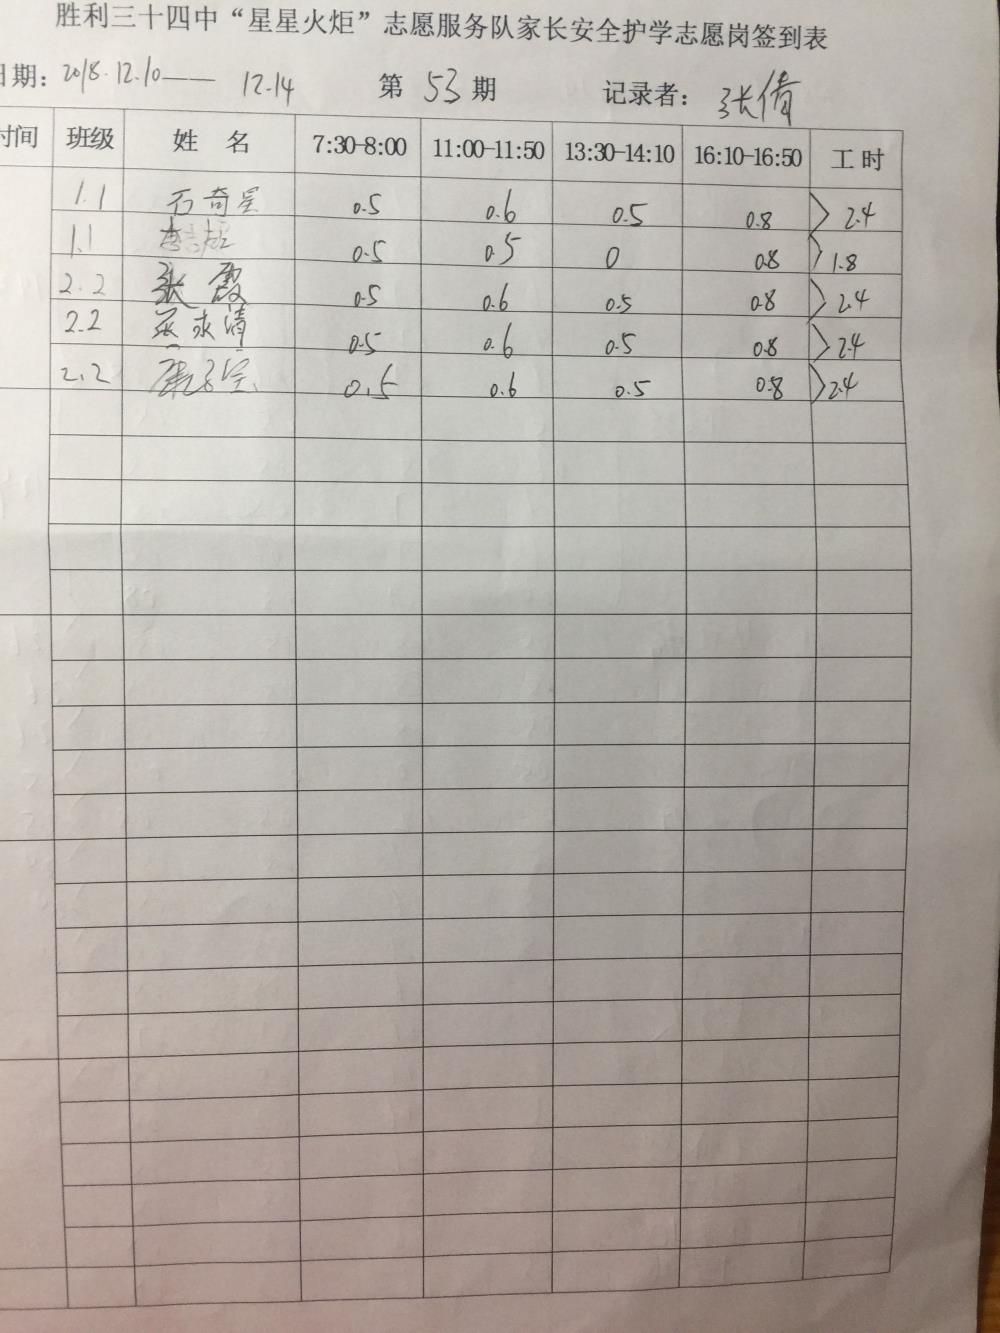 胜利三十四中“星星火炬”志愿服务队家长安全护学志愿岗签到表
日期：2018.12.10—— 12.14 第 53 期 记录者：张倩
时间 班级 姓 名 7:30-8:00 11:00-11:50 13:30-14:10 16:10-16:50 工 时
1.1 石奇星 0.5 0.6 0.5 0.8 2.4
1.1 0.5 0.5 0 0.8 1.8
2.2 张霞 0.5 0.6 0.5 0.8 2.4
2.2 永清 0.5 0.6 0.5 0.8 2.4
2.2 0.5 0.6 0.5 0.8 2.4